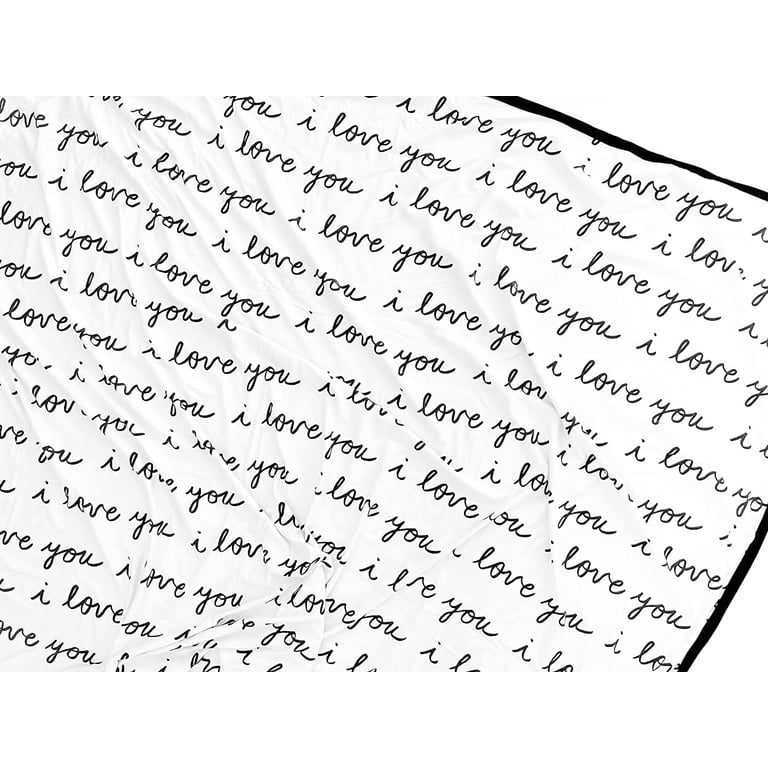 i love you i love you i
you i love you i love you i
love you i love you i love you i love you i
you i love you i love you i love you
love you i love you i love you i love you i
you i love you i love you i love you
love you i love you i love you i love you
i love you i love you i love you
i love you i love you i love you
i love you i love you i love you
i love you i love you i love you
love you i love you i love you
i love you i love you
love you